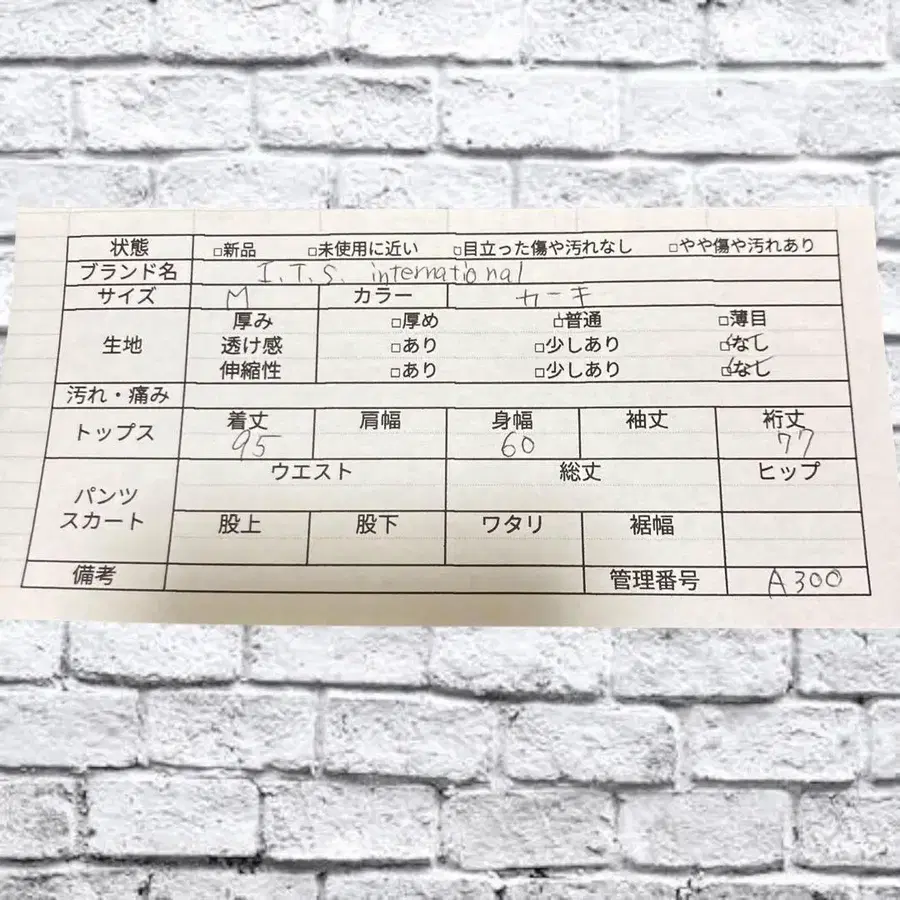 状態 □新品 □未使用に近い □目立った傷や汚れなし □やや傷や汚れあり
ブランド名 I.T.S. international
サイズ M カラー カーキ
厚み □厚め □普通 □薄目
生地 透け感 □あり □少しあり □なし
伸縮性 □あり □少しあり □なし
汚れ・痛み
トップス 着丈 肩幅 身幅 袖丈 裄丈
95 60 77
ウエスト 総丈 ヒップ
パンツ
スカート 股上 股下 ワタリ 裾幅
備考 管理番号 A300